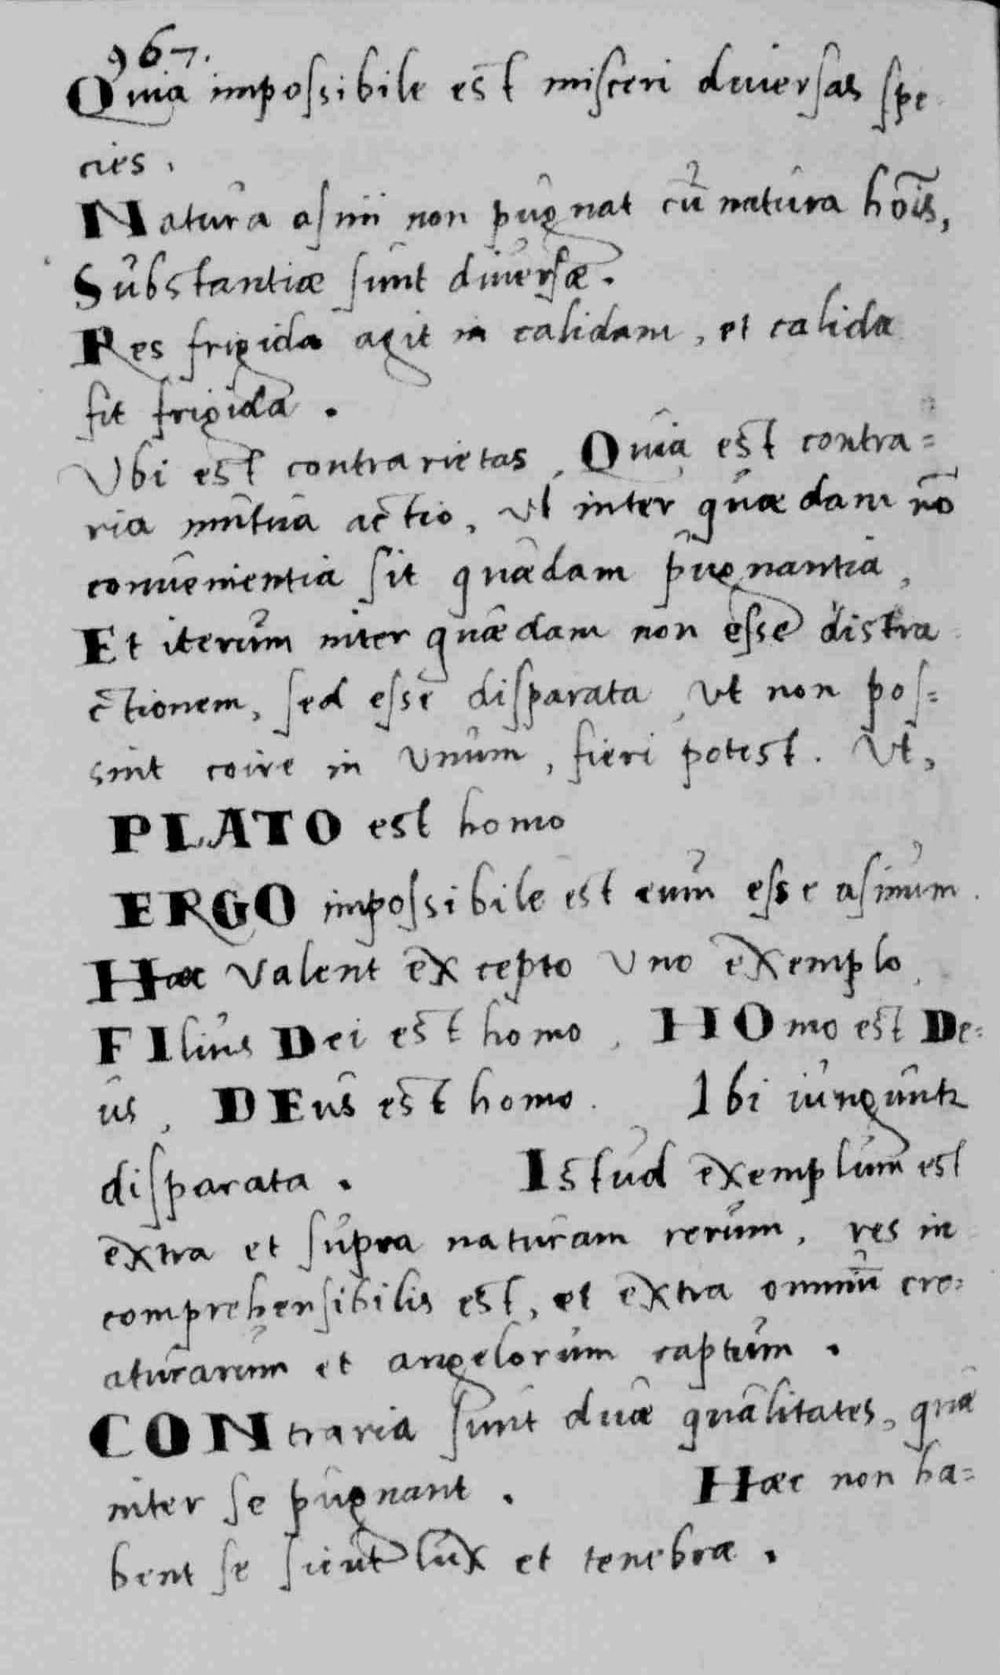 967.
Quia impossibile est misceri diuersas spe
cies.
Natura asini non pugnat cū natura hōis,
Substantiæ sunt diuersæ.
Res frigida agit in calidam, et calida
fit frigida.
Vbi est contrarietas, Quia est contra=
ria mutua actio, Vt inter quædam nō
conuenientia sit quædam pugnantia,
Et iterum inter quædam non esse distra
ctionem, sed esse disparata, Vt non pos=
sint coire in Vnum, fieri potest. Vt,
PLATO est homo
ERGO impossibile est eum esse asinum.
Hæc Valent excepto Vno exemplo,
FIlius Dei est homo, HOmo est De=
us, DEus est homo. Ibi iungunt
disparata. Istud exemplum est
extra et supra naturam rerum, res in
comprehensibilis est, et extra omniū cre=
aturarum et angelorum captum.
CONtraria sunt duæ qualitates, quæ
inter se pugnant. Hæc non ha=
bent se sicut lux et tenebræ.